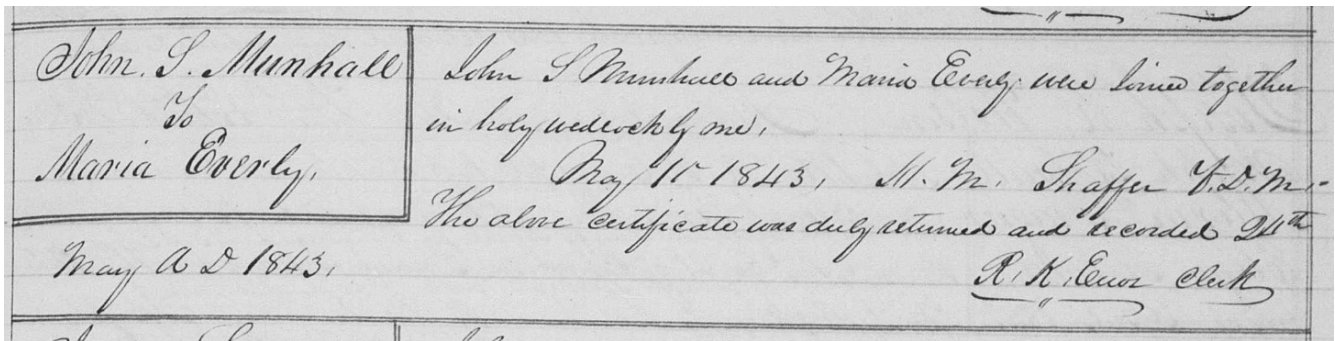 John. S. Munhall
To
Maria Everly.
John S Munhall and Maria Everly were Joined together
in holy wedlock by me,
May 1843, M. M. Shaffer V. D. M.
The above certificate was duly returned and recorded 24th
May A D 1843.
R. K. Enos Clerk